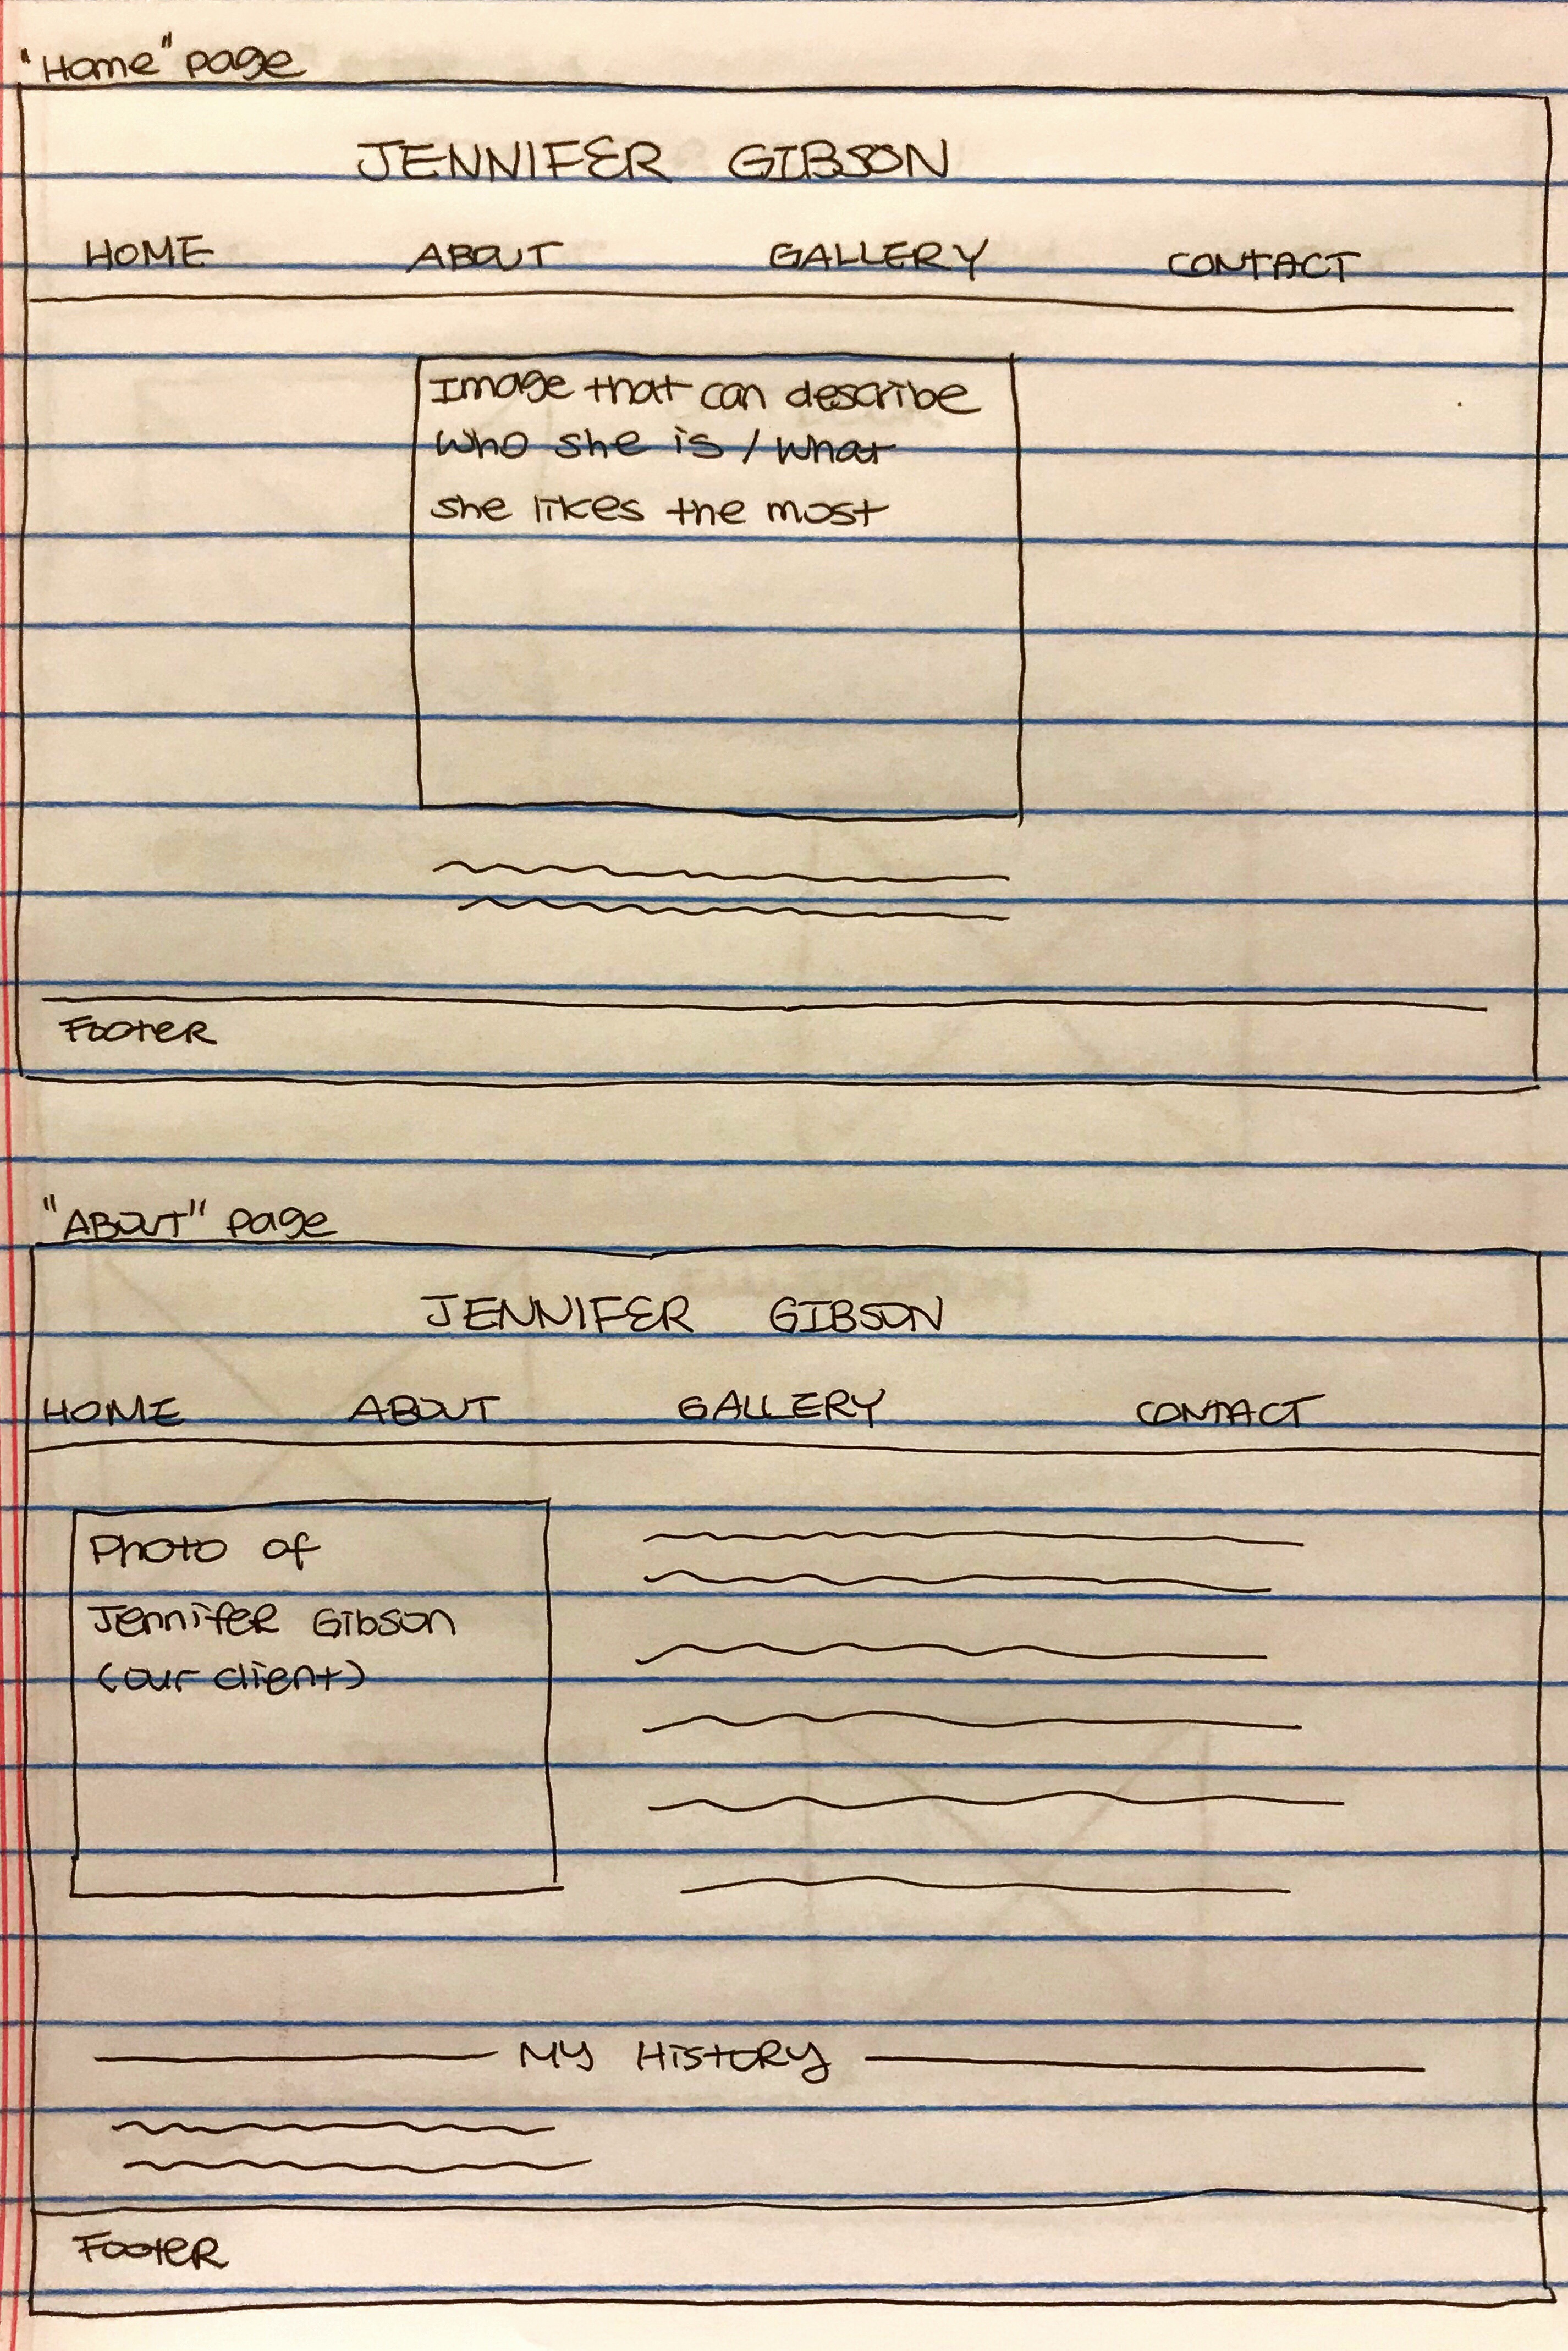 "Home" page
JENNIFER GIBSON
HOME ABOUT GALLERY CONTACT
Image that can describe
who she is / what
she likes the most
Footer
"ABOUT" page
JENNIFER GIBSON
HOME ABOUT GALLERY CONTACT
Photo of
Jennifer Gibson
(our client)
MY HISTORY
Footer